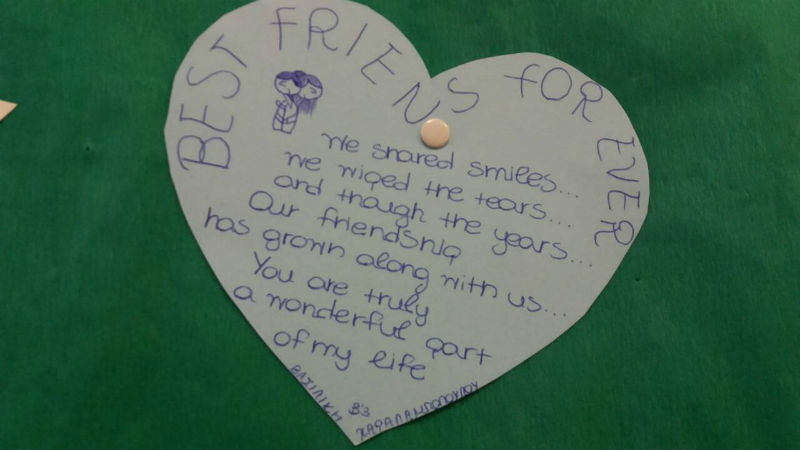 BEST FRIENS FOR EVER
We shared smiles...
we wiped the tears...
and though the years...
Our friendship
has grown along with us...
You are truly
a wonderful part
of my life
ΒΑΣΙΛΙΚΗ
Β'3
ΧΑΡΑΛΑΜΠΟΠΟΥΛΟΥ